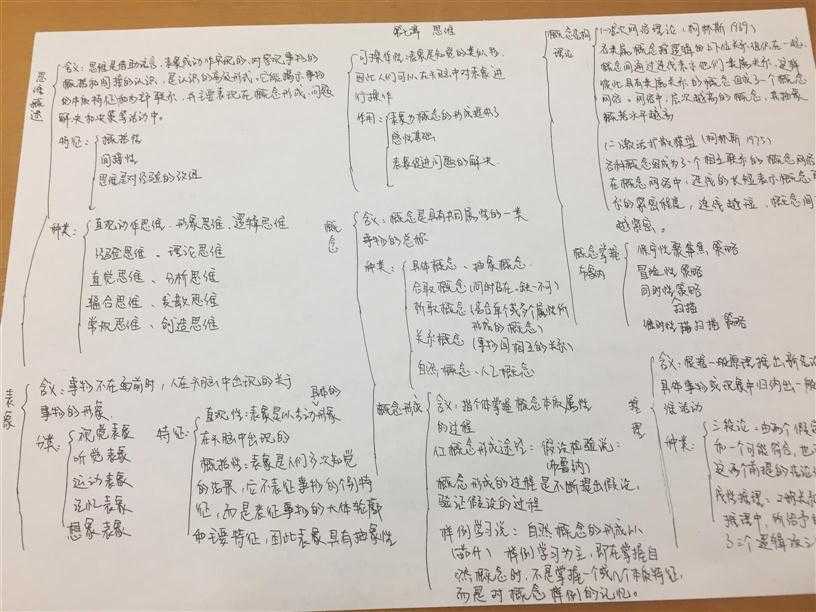 第七章 思维
思维概述
含义：思维是借助语言、表象或动作实现的、对客观事物的
概括和间接的认识，是认识的高级形式。它能揭示事物
的本质特征和内部联系，并主要表现在概念形成、问题
解决和决策等活动中。
特征：概括性
间接性
思维是对经验的改组
种类：直观动作思维、形象思维、逻辑思维
经验思维、理论思维
直觉思维、分析思维
辐合思维、发散思维
常规思维、创造思维
表象
含义：事物不在面前时，人在头脑中出现的关于
事物的形象.
分类：视觉表象
听觉表象
运动表象
记忆表象
想象表象
特征：直观性：表象是以生动具体的形象
在头脑中出现的
概括性：表象是人们多次知觉
的结果，它不表征事物的个别特
征，而是表征事物的大体轮廓
和主要特征，因此表象具有抽象性
可操作性：表象是知觉的类似物.
因此人们可以在头脑中对表象进
行操作
作用：表象为概念的形成提供了
感性基础
表象促进问题的解决
概念
含义：概念是具有共同属性的一类
事物的总称
种类：具体概念、抽象概念
合取概念（同时存在、缺一不可）
析取概念（结合单个或多个属性所
形成的概念）
关系概念（事物间相互的关系）
自然概念、人工概念
概念形成
含义：指个体掌握概念本质属性
的过程
人工概念形成途径：假设检验说：
（布鲁纳）
概念形成的过程是不断提出假设、
验证假设的过程
样例学习说：自然概念的形成以
（部分）样例学习为主，即在掌握自
然概念时，不是掌握一个或几个本质特征，
而是对概念样例的记忆。
概念结构理论
（一）层次网络理论（柯林斯 1969）
概念间通过连线表示他们的隶属关系，这样
彼此具有隶属关系的概念组成了一个概念
网络。网络中，层次越高的概念，其抽象
概括水平越高
（二）激活扩散模型（柯林斯 1975）
各种概念组成为了一个相互联系的概念网络
在概念网络中，连线的长短表示概念
系的紧密程度，连线越短，概念间
越紧密。
概念掌握
保守性聚焦策略
冒险性策略
同时性扫描策略
继时性扫描策略
推理
含义：根据一般原理推出新结论
具体事物或现象中归纳出一般
维活动
种类：三段论：由两个假定
和一个可能符合，也
这两个前提的结论
线性推理：
推理中，所给予的
了三个逻辑